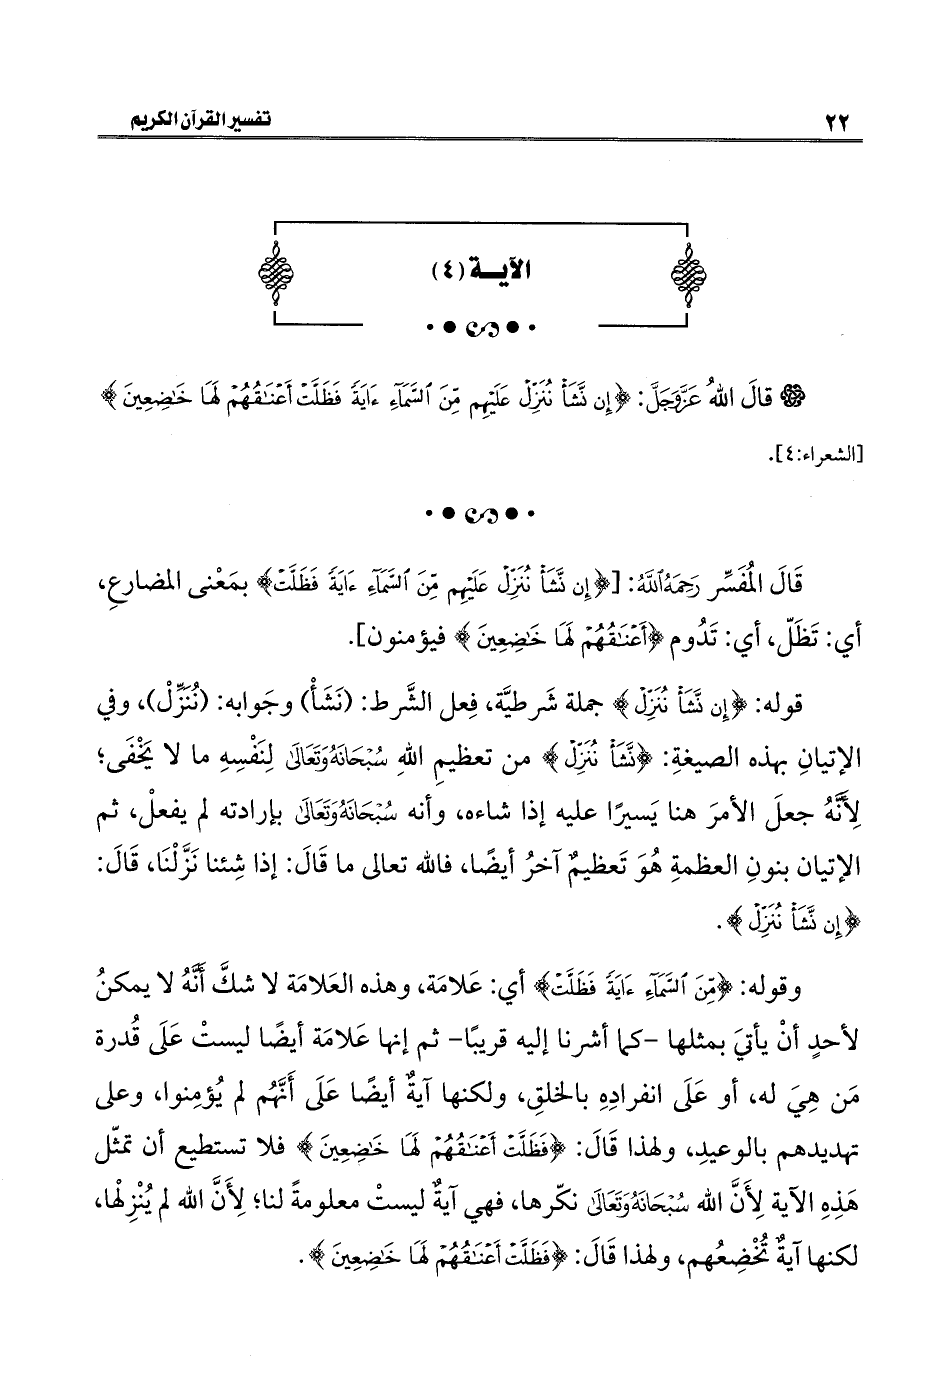 ٢٢
تفسير القرآن الكريم
الآيـــة (٤)
قالَ اللهُ عَزَّوَجَلَّ: ﴿إِن نَّشَأْ نُنَزِّلْ عَلَيْهِم مِّنَ ٱلسَّمَآءِ ءَايَةً فَظَلَّتْ أَعْنَٰقُهُمْ لَهَا خَٰضِعِينَ﴾
[الشعراء:٤].
قَالَ المُفَسِّر رَحِمَهُ اللَّهُ: [﴿إِن نَّشَأْ نُنَزِّلْ عَلَيْهِم مِّنَ ٱلسَّمَآءِ ءَايَةً فَظَلَّتْ﴾ بمَعْنى المضارعِ،
أي: تَظَلّ، أي: تَدُوم ﴿أَعْنَٰقُهُمْ لَهَا خَٰضِعِينَ﴾ فيؤمنون].
قوله: ﴿إِن نَّشَأْ نُنَزِّلْ﴾ جملة شَرطيَّة، فِعل الشَّرط: (نَشَأْ) وجَوابه: (نُنَزِّلْ)، وفي
الإتيان بهذه الصيغةِ: ﴿نَّشَأْ نُنَزِّلْ﴾ من تعظيمِ اللهِ سُبْحَانَهُ وَتَعَالَى لِنَفْسِهِ ما لا يَخْفَى؛
لِأَنَّهُ جعلَ الأمرَ هنا يَسيرًا عليه إذا شاءه، وأنه سُبْحَانَهُ وَتَعَالَى بإرادته لم يفعلْ، ثم
الإتيان بنونِ العظمةِ هُوَ تَعظيمٌ آخرُ أيضًا، فالله تعالى ما قَالَ: إذا شِئنا نَزَّلْنَا، قَالَ:
﴿إِن نَّشَأْ نُنَزِّلْ﴾.
وقوله: ﴿مِّنَ ٱلسَّمَآءِ ءَايَةً فَظَلَّتْ﴾ أي: عَلامَة، وهذه العَلامَة لا شكَّ أَنَّهُ لا يمكنُ
لأحدٍ أنْ يأتيَ بمثلها -كما أشرنا إليه قريبًا- ثم إنها عَلامَة أيضًا ليستْ عَلَى قُدرة
مَن هِيَ له، أو عَلَى انفرادِهِ بالخلقِ، ولكنها آيةٌ أيضًا عَلَى أَنَّهُم لم يُؤمِنوا، وعلى
تهديدهم بالوعيدِ، ولهذا قَالَ: ﴿فَظَلَّتْ أَعْنَٰقُهُمْ لَهَا خَٰضِعِينَ﴾ فلا تستطيع أن تمثّل
هَذِهِ الآية لِأَنَّ الله سُبْحَانَهُ وَتَعَالَى نكّرها، فهي آيةٌ ليستْ معلومةً لنا؛ لِأَنَّ الله لم يُنْزِلْها،
لكنها آيةٌ تُخْضِعُهم، ولهذا قَالَ: ﴿فَظَلَّتْ أَعْنَٰقُهُمْ لَهَا خَٰضِعِينَ﴾.